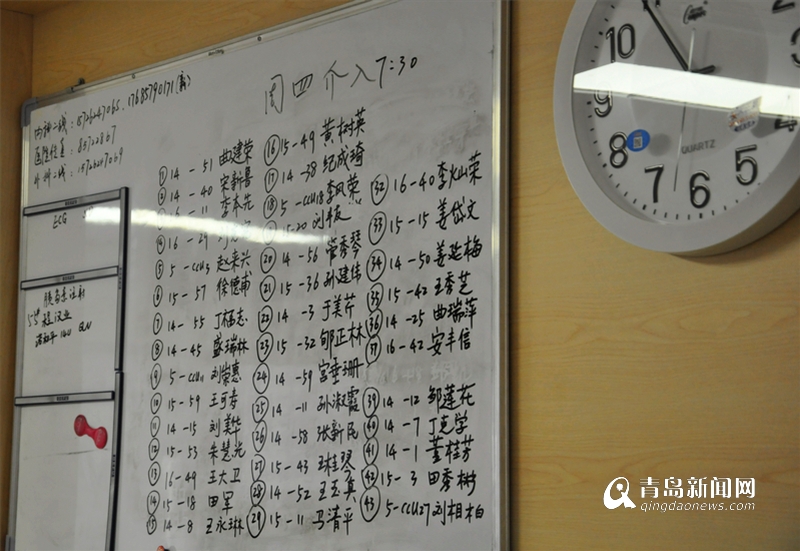 周四介入7:30
内科二线: 15726247065. 17685790171
医院位置: 85722867
外科二线: 15726247069
ECG
胰岛素注射
① 14 - 51 曲建荣
② 14 - 40 宋新暑
③ 11 李本先
④ 16 - 29
⑤ 5 - CCU5 赵来兴
⑥ 15 - 57 徐德甫
⑦ 14 - 55 丁福志
⑧ 14 - 45 盛瑞林
⑨ 5 - CCU11 刘崇惠
⑩ 15 - 59 王可寿
⑪ 14 - 15 刘美华
⑫ 15 - 53 朱慧光
⑬ 16 - 49 王大卫
⑭ 15 - 18 田军
⑮ 14 - 8 王永琳
⑯ 15 - 49 黄树英
⑰ 14 - 38 纪成琦
⑱ 5 - CCU18 李风荣
15-20 刘
⑳ 14 - 56 管秀琴
㉑ 15 - 36 孙建伟
㉒ 14 - 3 于美芹
㉓ 15 - 32 邹正林
㉔ 14 - 59 宫垂珊
㉕ 14 - 11 孙淑霞
㉖ 14 - 58 张新民
㉗ 15 - 43 王桂琴
㉘ 14 - 52 王玉真
㉙ 15 - 11 马清平
㉜ 16 - 40 李火山荣
㉝ 15 - 15 姜岱文
㉞ 14 - 50 姜延梅
㉟ 15 - 42 王秀芝
㊱ 14 - 25 曲瑞萍
㊲ 16 - 42 安丰信
㊴ 14 - 12 邹莲花
㊵ 14 - 7 丁克学
㊶ 14 - 1 董桂芳
㊷ 15 - 3 田秀树
㊸ 5 - CCU27 刘相柏
10
9
8
7
6
5
4
QUARTZ
青岛新闻网
qingdaonews.com